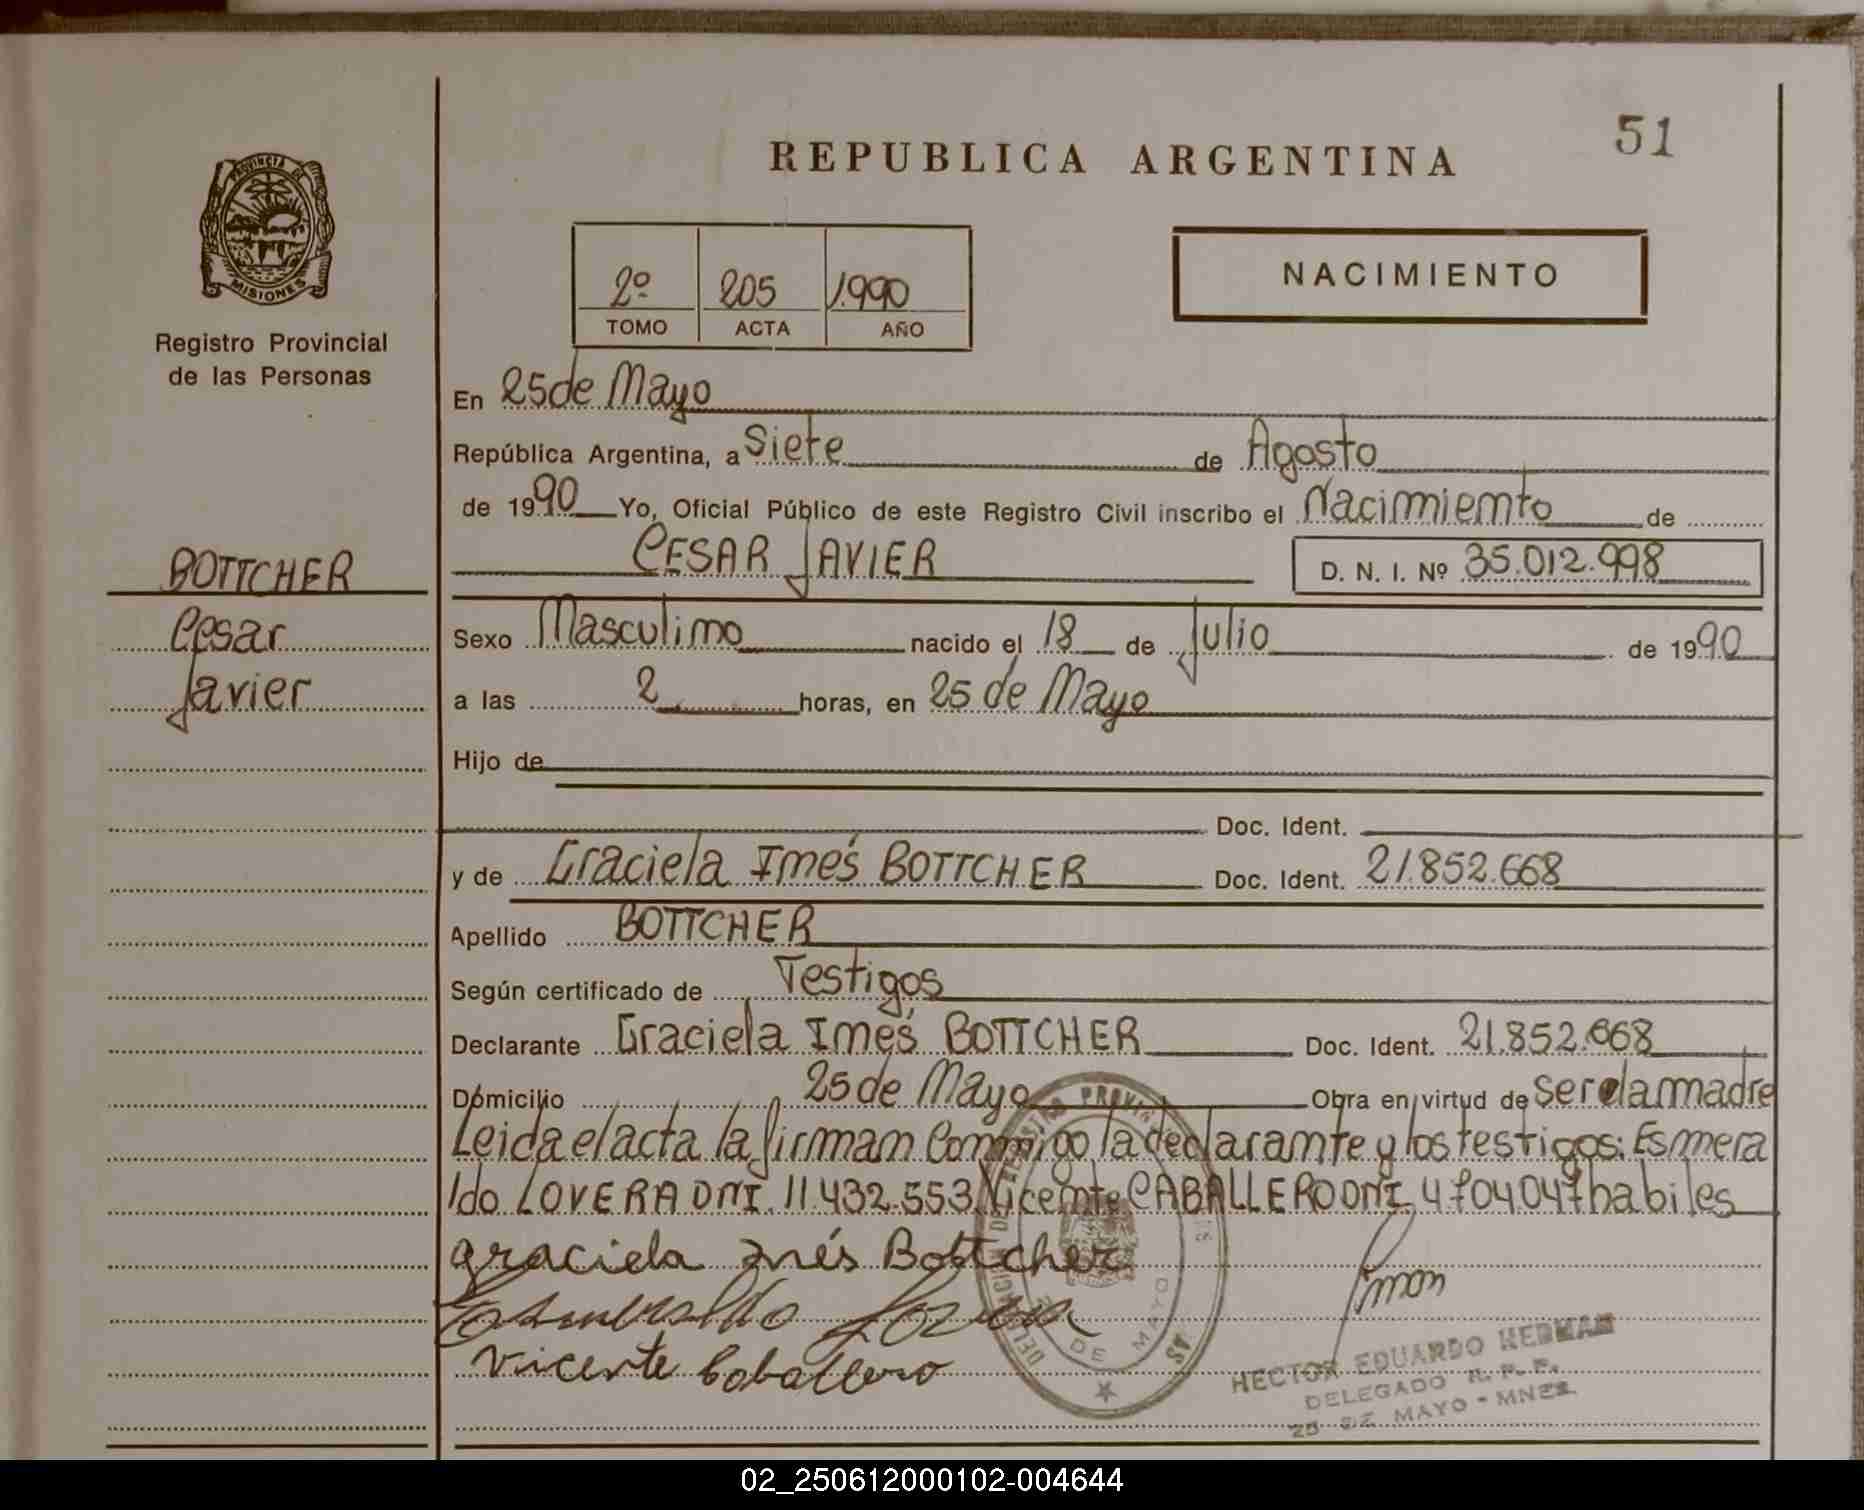 51
REPUBLICA ARGENTINA
PROVINCIA DE
MISIONES
Registro Provincial
de las Personas
2º 205 1990
TOMO ACTA AÑO
NACIMIENTO
En 25 de Mayo
República Argentina, a Siete de Agosto
de 1990 Yo, Oficial Público de este Registro Civil inscribo el Nacimiento de
CESAR JAVIER D. N. I. Nº 35.012.998
BOTTCHER
Cesar
Javier
Sexo Masculino nacido el 18 de Julio de 1990
a las 2 horas, en 25 de Mayo
Hijo de
Doc. Ident.
y de Graciela Inés BOTTCHER Doc. Ident. 21.852.668
Apellido BOTTCHER
Según certificado de Testigos
Declarante Graciela Inés BOTTCHER Doc. Ident. 21.852.668
Domicilio 25 de Mayo Obra en virtud de ser la madre
Leida el acta la firman Conmigo la declarante y los testigos: Esmera
ldo LOVERA DNI. 11.432.553 Vicente CABALLERO DNI. 4704047 habiles
graciela inés Bottcher
Vicente Caballero
DE MAYO
HECTOR EDUARDO HERMAN
DELEGADO R. P. P.
25 DE MAYO - MNES.
02_250612000102-004644